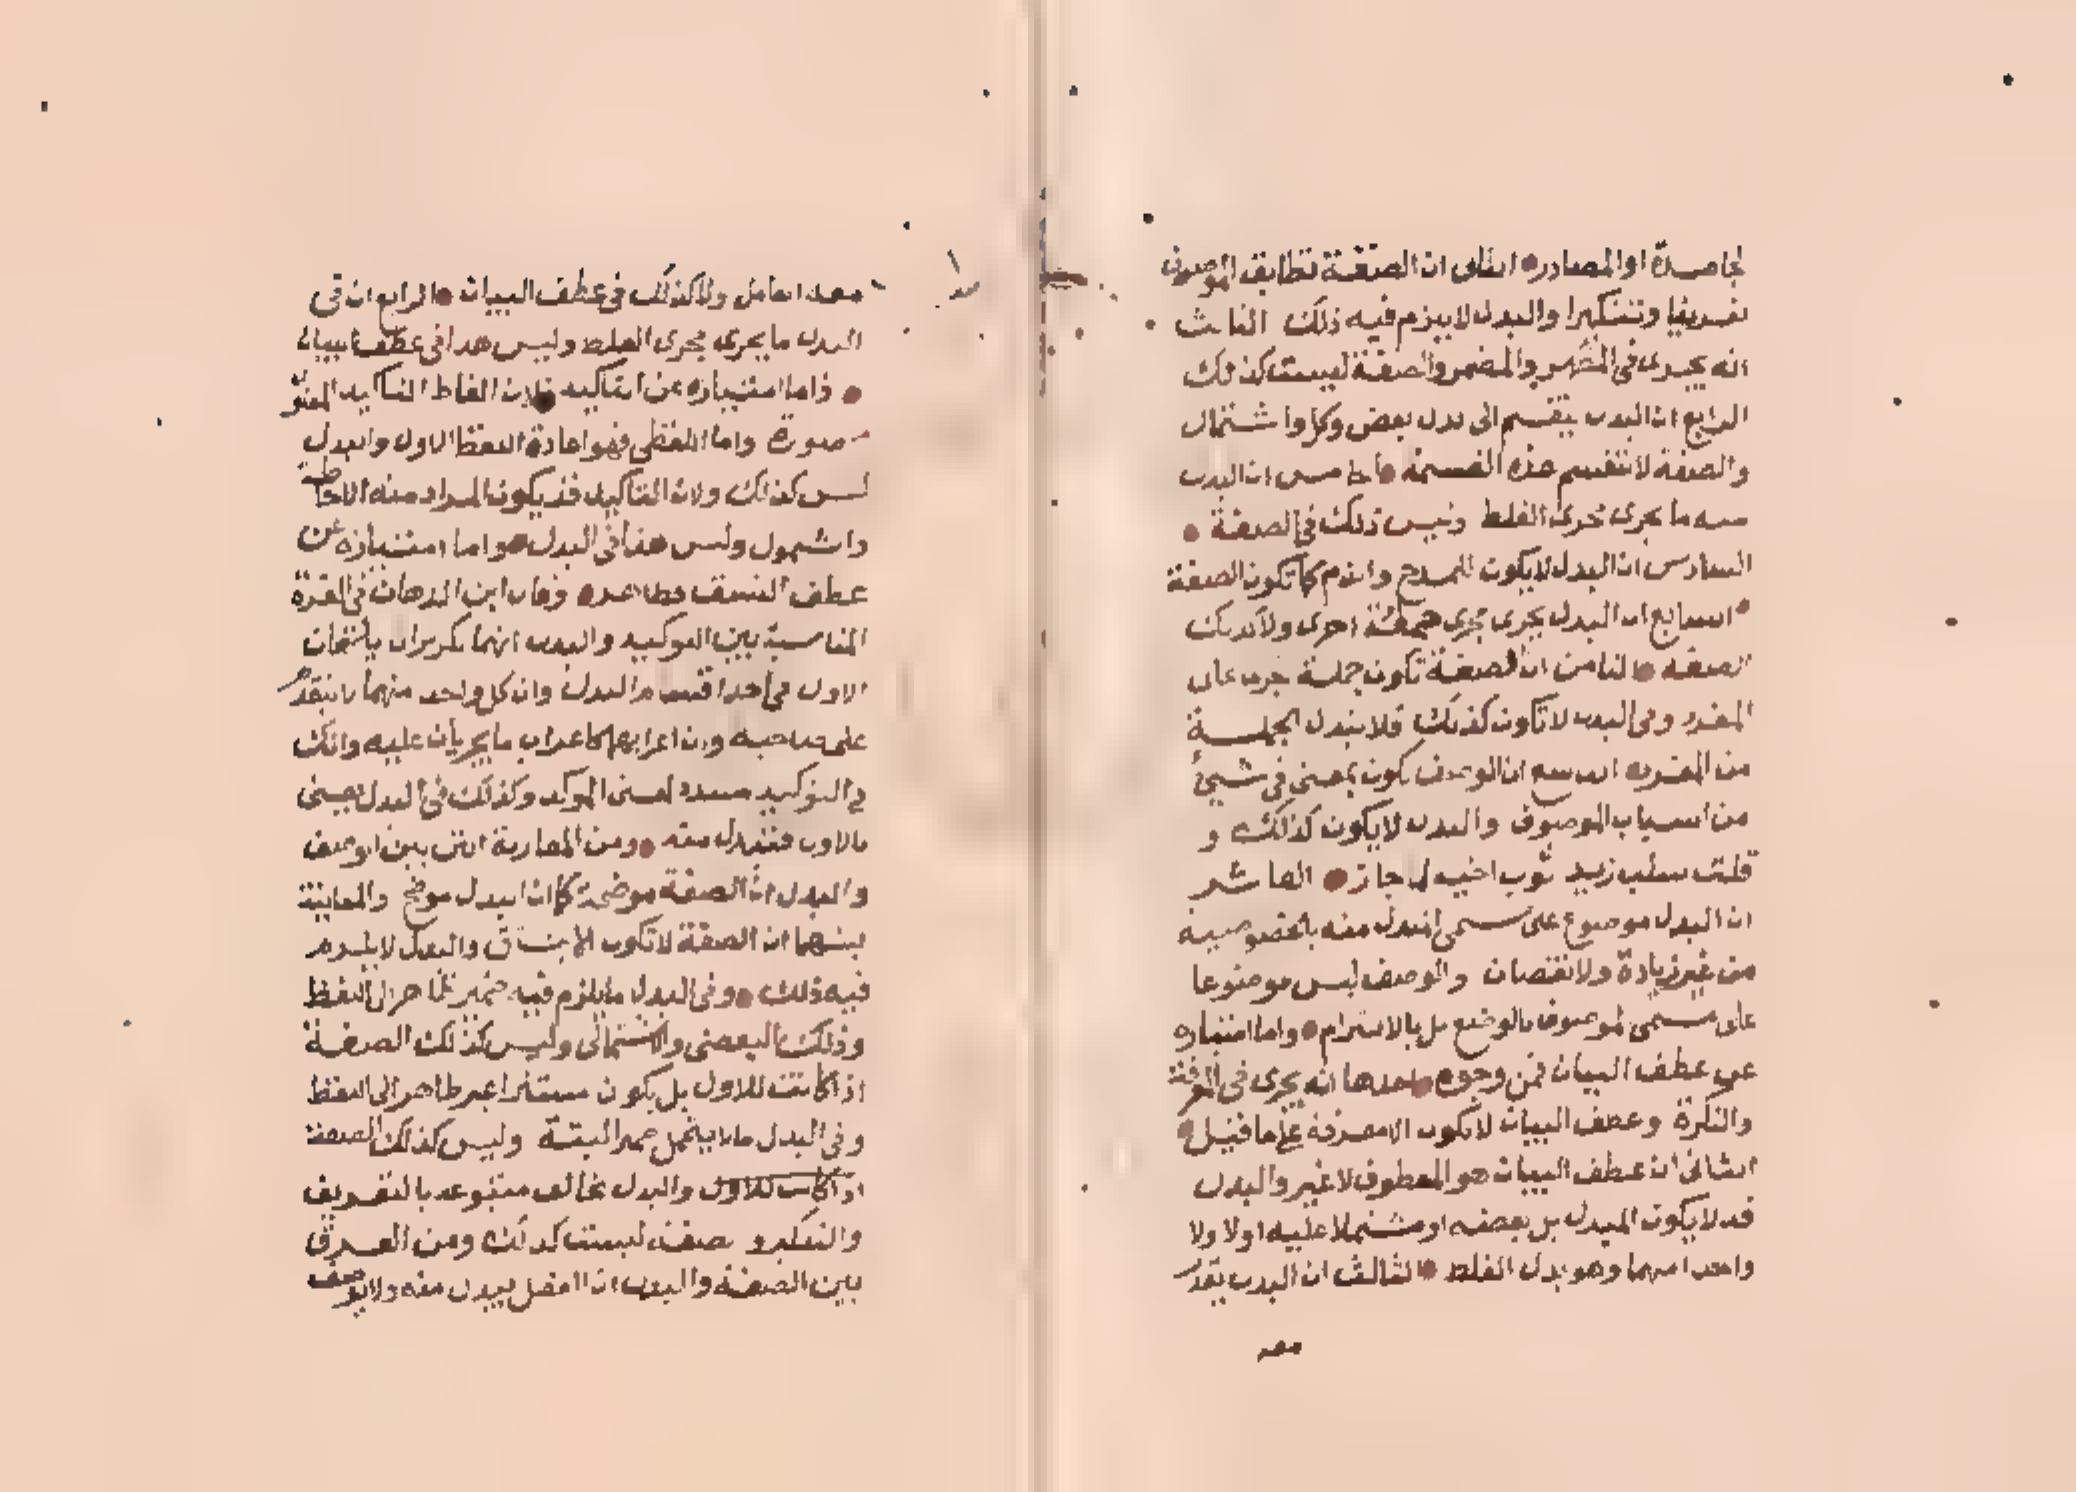 الجامدة او المصادر الثانى ان الصفة تطابق الموصوف
تعريفا وتنكيرا والبدل لا يلزم فيه ذلك الثالث
انه يجرى فى المظهر والمضمر والصفة ليست كذلك
الرابع ان البدل ينقسم الى بدل بعض وكل واشتمال
والصفة لا تنقسم هذه القسمة الخامس ان البدل
منه ما يجرى مجرى الغلط وليس ذلك فى الصفة
السادس ان البدل لا يكون للمدح والذم كما تكون الصفة
السابع ان البدل يجرى مجرى جملة اخرى ولا كذلك
الصفه الثامن ان الصفة تكون جملة تجرى على
المفرد وفى البدل لا تكون كذلك فلا تبدل الجملة
من المفرد التاسع ان الوصف يكون بمعنى فى شيئ
من اسباب الموصوف والبدل لا يكون كذلك و
قلت سلب زيد ثوب اخيه لجاز العاشر
ان البدل موضوع على مسمى المبدل منه بالخصوصية
من غير زيادة ولا نقصان والوصف ليس موضوعا
على مسمى الموصوف بالوضع بل بالالتزام واما امتيازه
عن عطف البيان فمن وجوه احدها انه يجرى فى المعرفة
والنكرة وعطف البيان لا يكون الا معرفة على ما قيل
الثانى ان عطف البيان هو المعطوف لا غير والبدل
قد لا يكون المبدل بل بعضه او مشتملا عليه اولا ولا
واحدا منهما وهو بدل الغلط الثالث ان البدل يقدر
معه
معه العامل ولا كذلك فى عطف البيان الرابع ان فى
البدل ما يجرى مجرى الغلط وليس هذا فى عطف البيان
واما امتيازه عن التاكيد فلان الفاظ التاكيد المعنوى
محصورة واما اللفظى فهو اعادة اللفظ الاول والبدل
ليس كذلك ولان التاكيد قد يكون المراد منه الاحاطة
والشمول وليس هذا فى البدل واما امتيازه عن
عطف النسق فظاهر وقال ابن الدهان فى الغرة
المناسبة بين التوكيد والبدل انهما تكريران يلحقان
الاول فى احد اقسام البدل وان كل واحد منهما لا يتقدم
على صاحبه وان اعرابهما كاعراب ما يجريان عليه وانك
فى التوكيد لمعنى الموكد وكذلك فى البدل يعنى
بالاول فتبدل منه ومن المقاربة التى بين الوصف
والبدل ان الصفة موضحة كما ان البدل موضح والمباينة
بينهما ان الصفة لا تكون الا بمشتق والبدل لا يلزم
فيه ذلك وفى البدل ما يلزم فيه ضمير ظاهر الى اللفظ
وذلك البعضى والاشتمالى وليس كذلك الصفة
اذا كانت للاول بل يكون مستترا غير ظاهر الى اللفظ
وفى البدل ما لا يتحمل ضميرا البتة وليس كذلك الصفة
اذا كانت للاول والبدل يخالف متبوعه بالتعريف
والتنكير والصفة ليست كذلك ومن الفرق
بين الصفة والبدل ان الفعل يبدل منه ولا يوصف